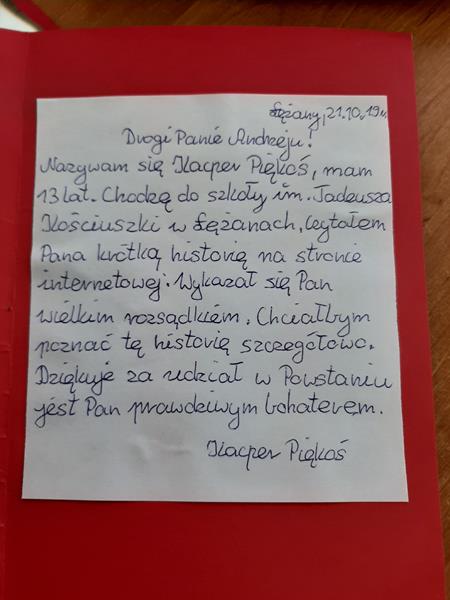 Łężany, 21.10.19r.
Drogi Panie Andrzeju!
Nazywam się Kacper Piękoś, mam
13 lat. Chodzę do szkoły im. Tadeusza
Kościuszki w Łężanach. Czytałem
Pana krótką historię na stronie
internetowej. Wykazał się Pan
wielkim rozsądkiem. Chciałbym
poznać tę historię szczegółowo.
Dziękuje za udział w Powstaniu
jest Pan prawdziwym bohaterem.
Kacper Piękoś